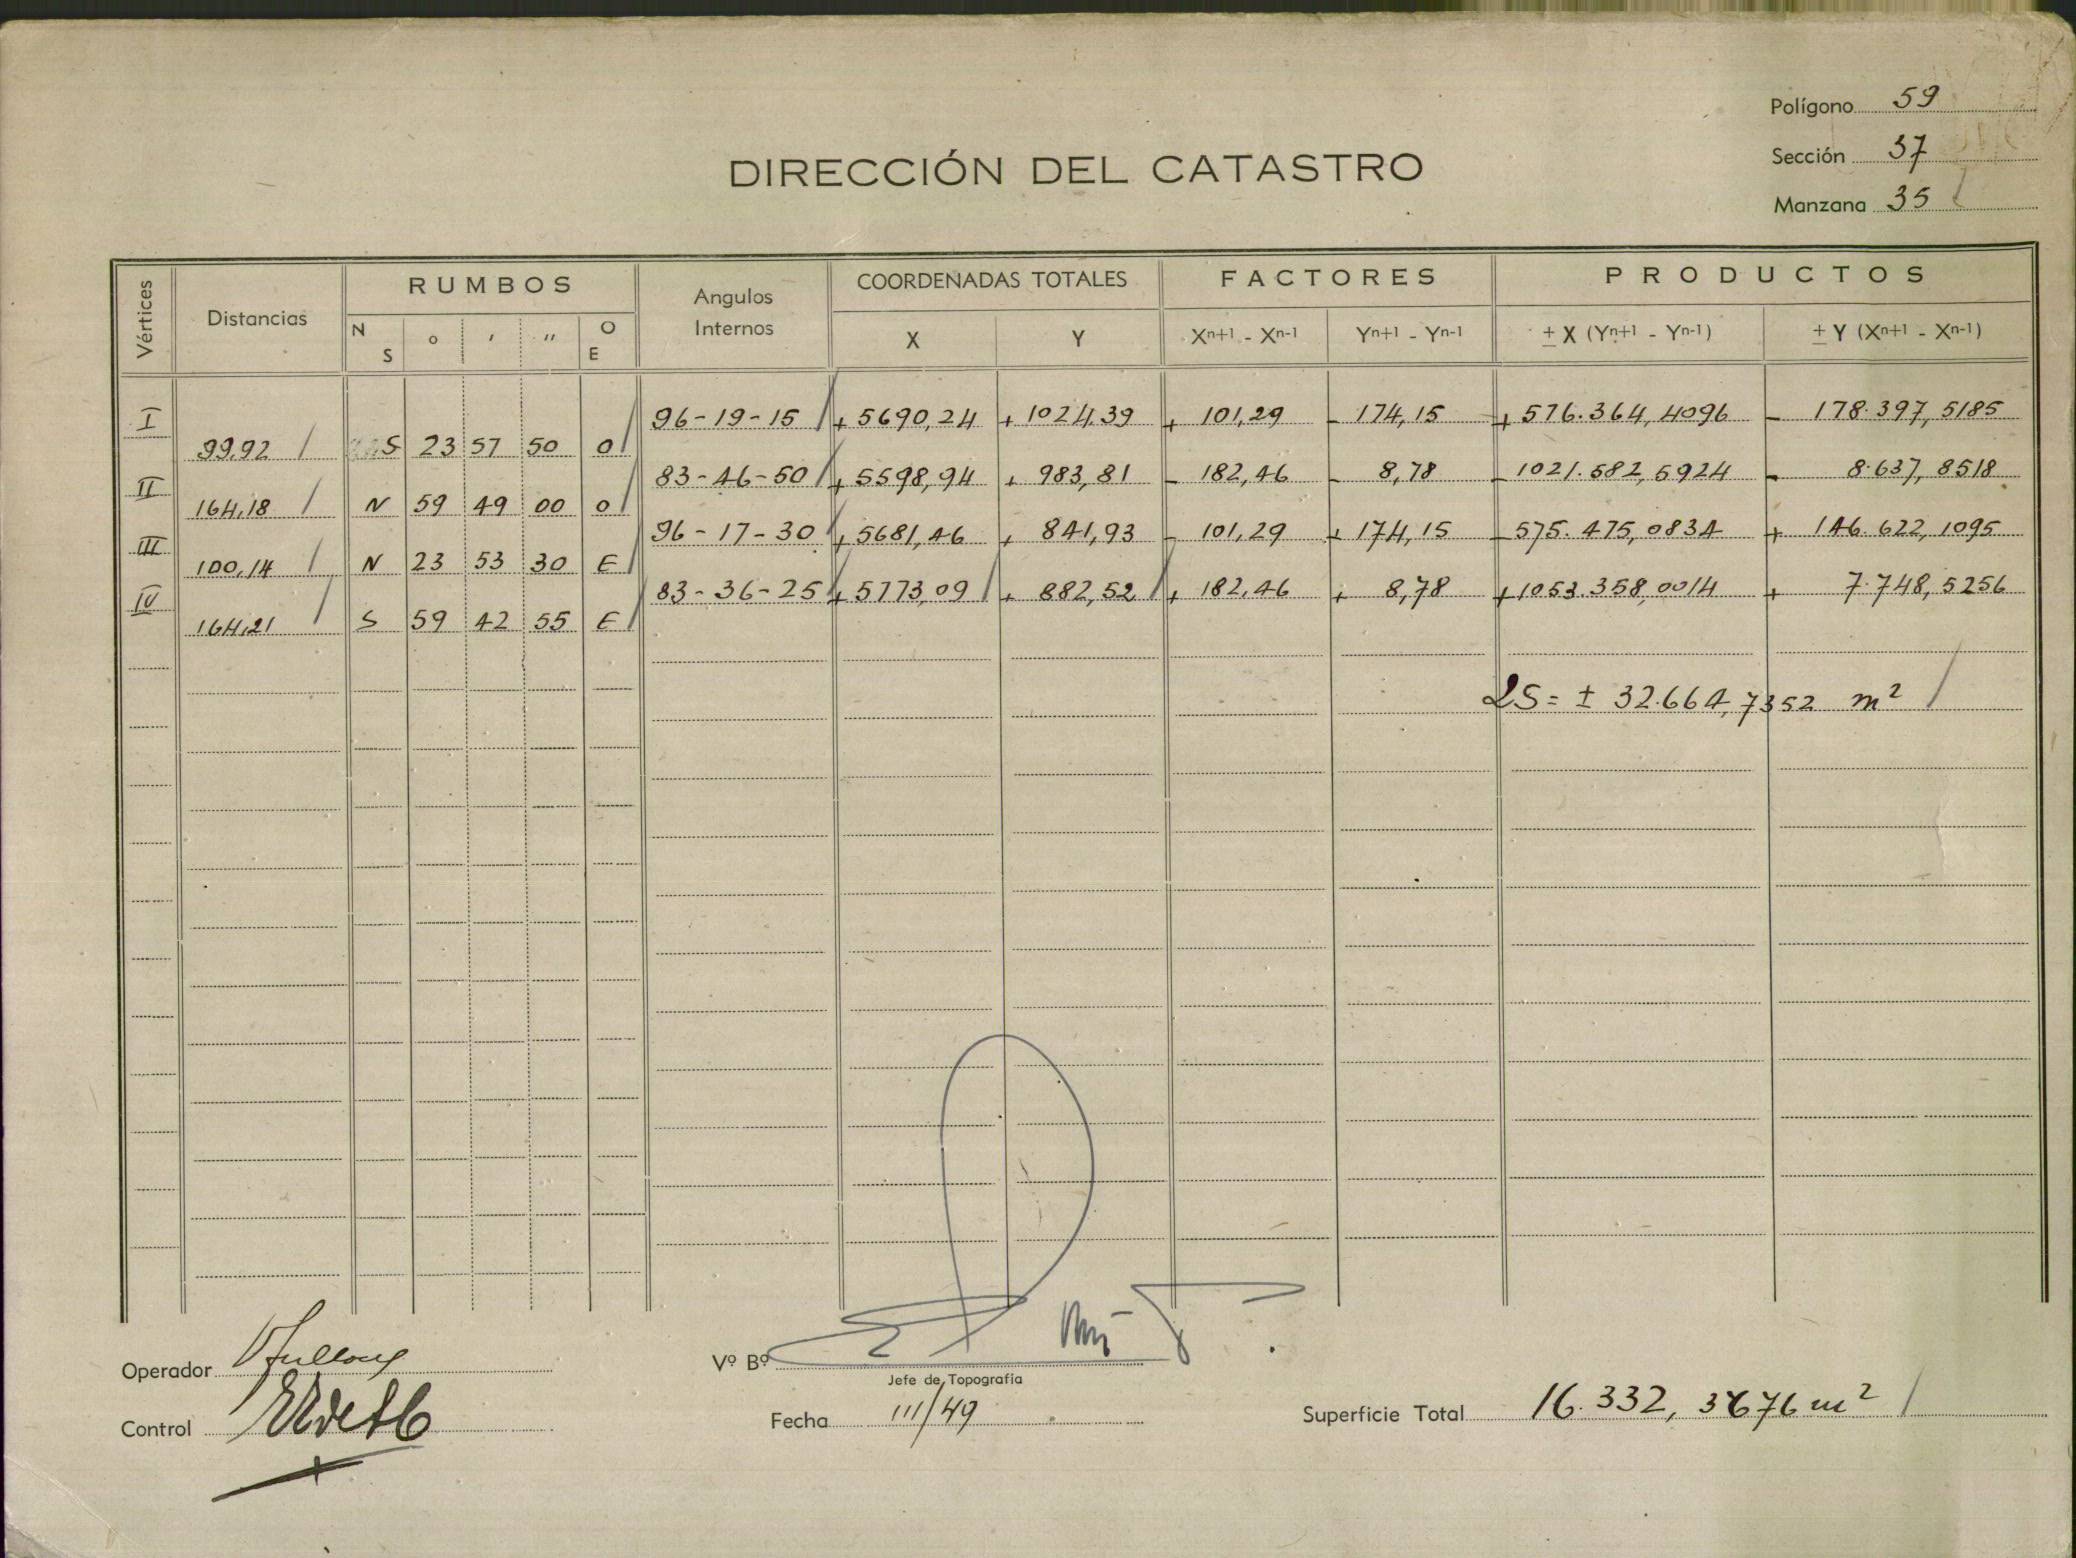 Polígono 59
DIRECCIÓN DEL CATASTRO
Sección 37
Manzana 35
Vértices Distancias RUMBOS Angulos Internos COORDENADAS TOTALES FACTORES PRODUCTOS
N S ° ' '' O E X Y Xn+1 - Xn-1 Yn+1 - Yn-1 ± X (Yn+1 - Yn-1) ± Y (Xn+1 - Xn-1)
I 96-19-15 + 5690,24 + 1024,39 + 101,29 - 174,15 + 576.364,4096 - 178.397,5185
99,92 S 23 57 50 O
II 83-46-50 + 5598,94 + 983,81 - 182,46 - 8,78 - 1021.582,5924 - 8.637,8518
164,18 N 59 49 00 O
III 96-17-30 + 5681,46 + 841,93 - 101,29 + 174,15 - 575.475,0834 + 146.622,1095
100,14 N 23 53 30 E
IV 83-36-25 + 5773,09 + 882,52 + 182,46 + 8,78 + 1053.358,0014 + 7.748,5256
164,21 S 59 42 55 E
2S = ± 32.664,7352 m²
Operador
Vº Bº
Jefe de Topografía
Control
Fecha III/49
Superficie Total 16.332,3676 m²